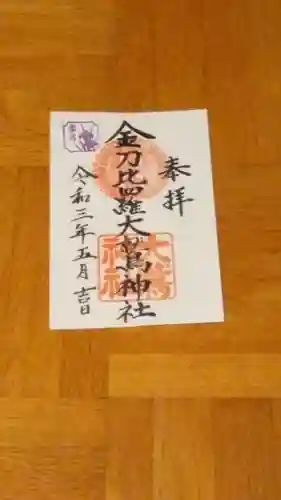 奉拝
金刀比羅大鷲神社
令和三年五月吉日
大鷲
神社